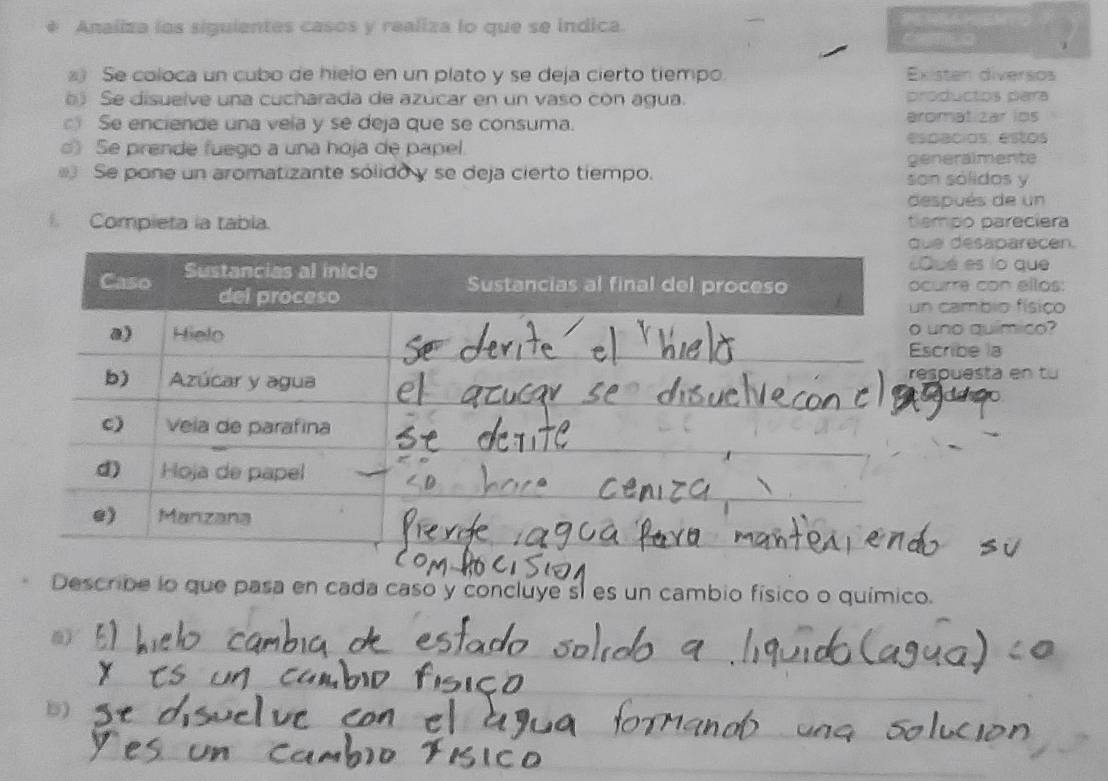 Analiza los siguientes casos y realiza lo que se indica.
a) Se coloca un cubo de hielo en un plato y se deja cierto tiempo.
b) Se disuelve una cucharada de azúcar en un vaso con agua.
c) Se enciende una vela y se deja que se consuma.
d) Se prende fuego a una hoja de papel.
e) Se pone un aromatizante sólido y se deja cierto tiempo.
Existen diversos
productos para
aromatizar los
espacios, estos
generalmente
son sólidos y
después de un
tiempo pareciera
que desaparecen.
¿Qué es lo que
ocurre con ellos:
un cambio físico
o uno químico?
Escribe la
respuesta en tu
Completa la tabla.
Caso Sustancias al inicio del proceso Sustancias al final del proceso
a) Hielo se derite el hielo
b) Azúcar y agua el azucar se disuelve con el
c) Vela de parafina se derite
d) Hoja de papel se hace ceniza
e) Manzana Pierde agua Para manteniendo su
comPocision
Describe lo que pasa en cada caso y concluye si es un cambio físico o químico.
a) El hielo cambia de estado solido a liquido (agua)
y es un cambio fisico
b) se disuelve con el agua formando una solucion
y es un cambio fisico